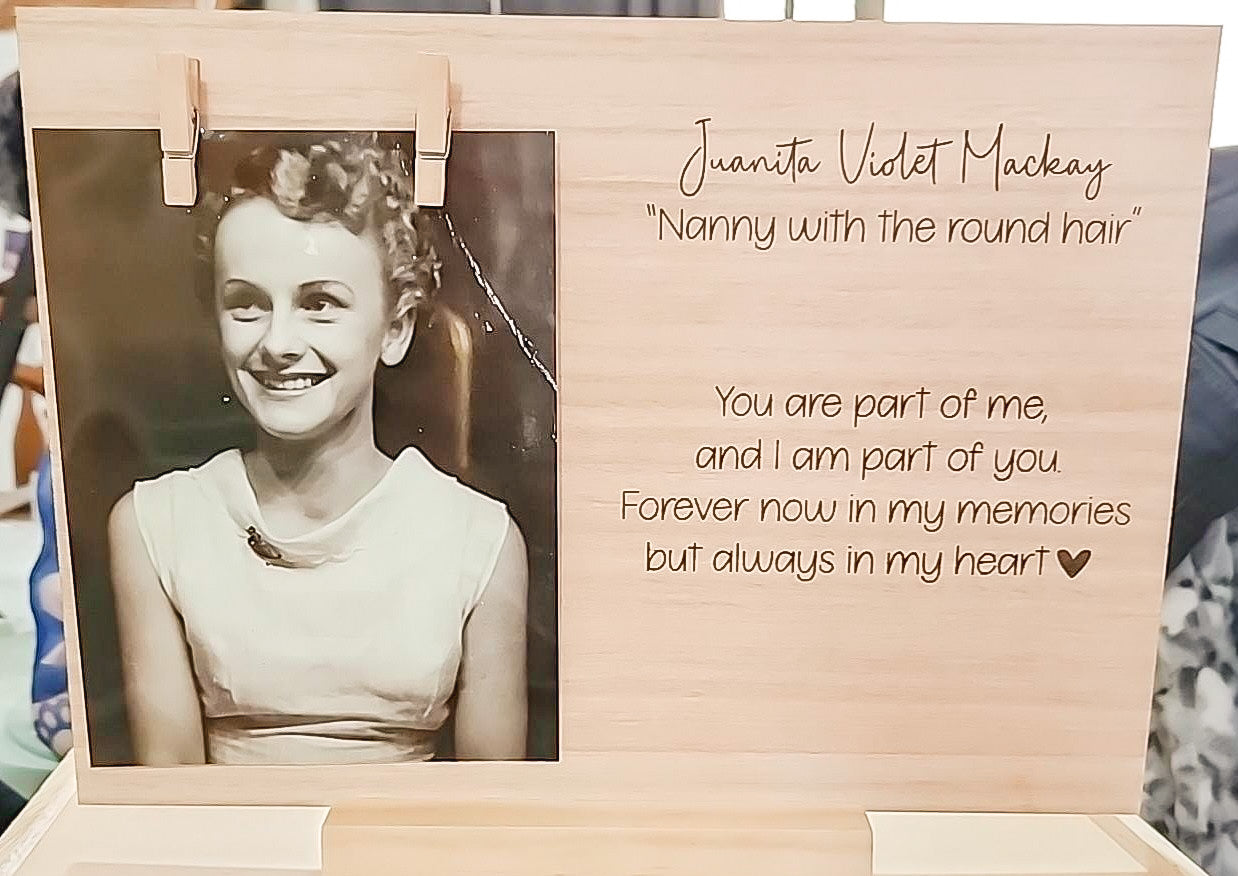 Juanita Violet Mackay
"Nanny with the round hair"
You are part of me,
and I am part of you.
Forever now in my memories
but always in my heart ♥